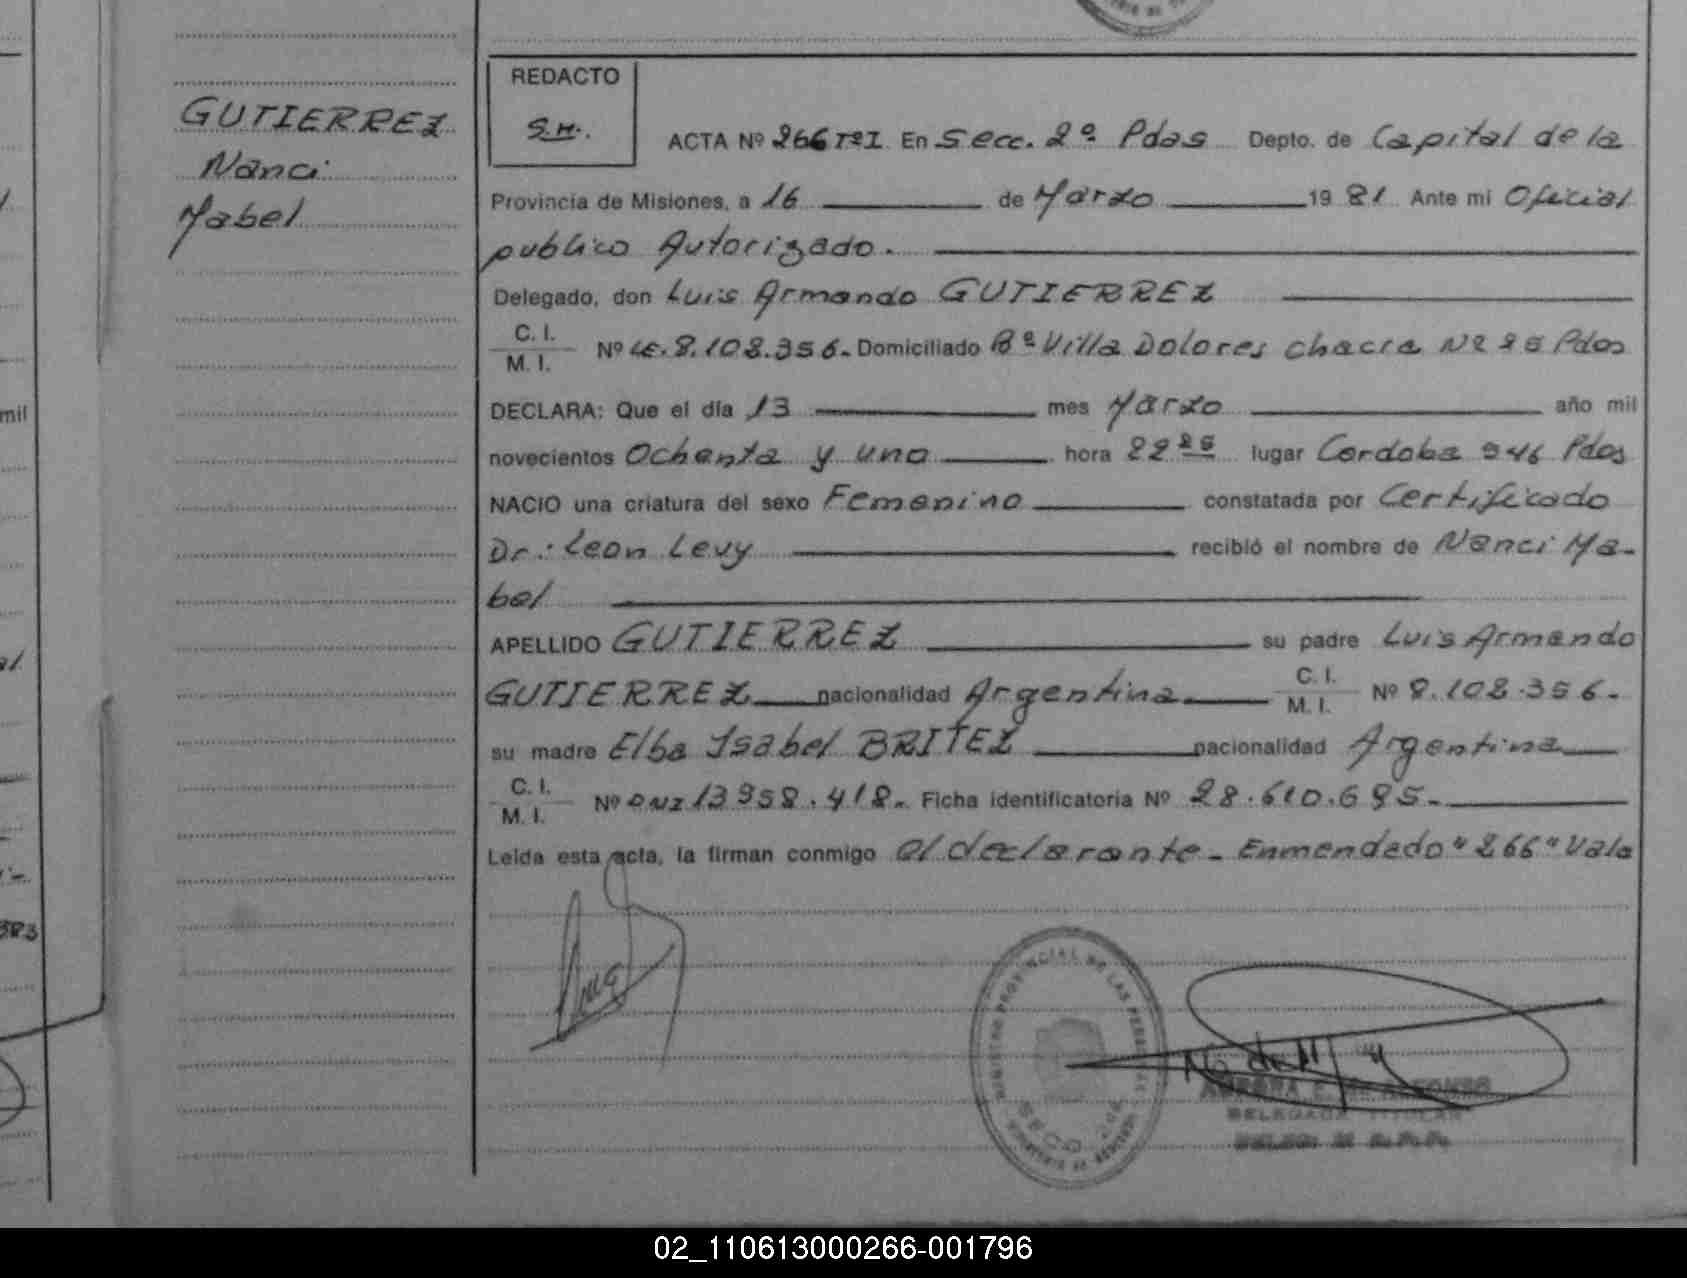 GUTIERREZ
Nanci
Mabel
REDACTO
S.M.
ACTA Nº 266 TºI En Secc. 2ª Pdas Depto. de Capital de la
Provincia de Misiones, a 16 de Marzo 1981 Ante mi Oficial
publico Autorizado.
Delegado, don Luis Armando GUTIERREZ
C. I.
M. I.
Nº LE. 8.108.356. Domiciliado Bº Villa Dolores chacra Nº Pdas
DECLARA: Que el día 13 mes Marzo año mil
novecientos Ochenta y uno hora lugar Cordoba 946 Pdas
NACIO una criatura del sexo Femenino constatada por Certificado
Dr.: Leon Levy recibió el nombre de Nanci Ma-
bel
APELLIDO GUTIERREZ su padre Luis Armando
GUTIERREZ nacionalidad Argentina C. I.
M. I. Nº 8.108.356.
su madre Elba Isabel BRITEZ nacionalidad Argentina
C. I.
M. I.
Nº DNI 13.958.418. Ficha identificatoria Nº 28.610.695.
Leída esta acta, la firman conmigo el declarante. Enmendado "266" Vale
REGISTRO PROVINCIAL DE LAS PERSONAS
DELEGADA TITULAR
mil
02_110613000266-001796